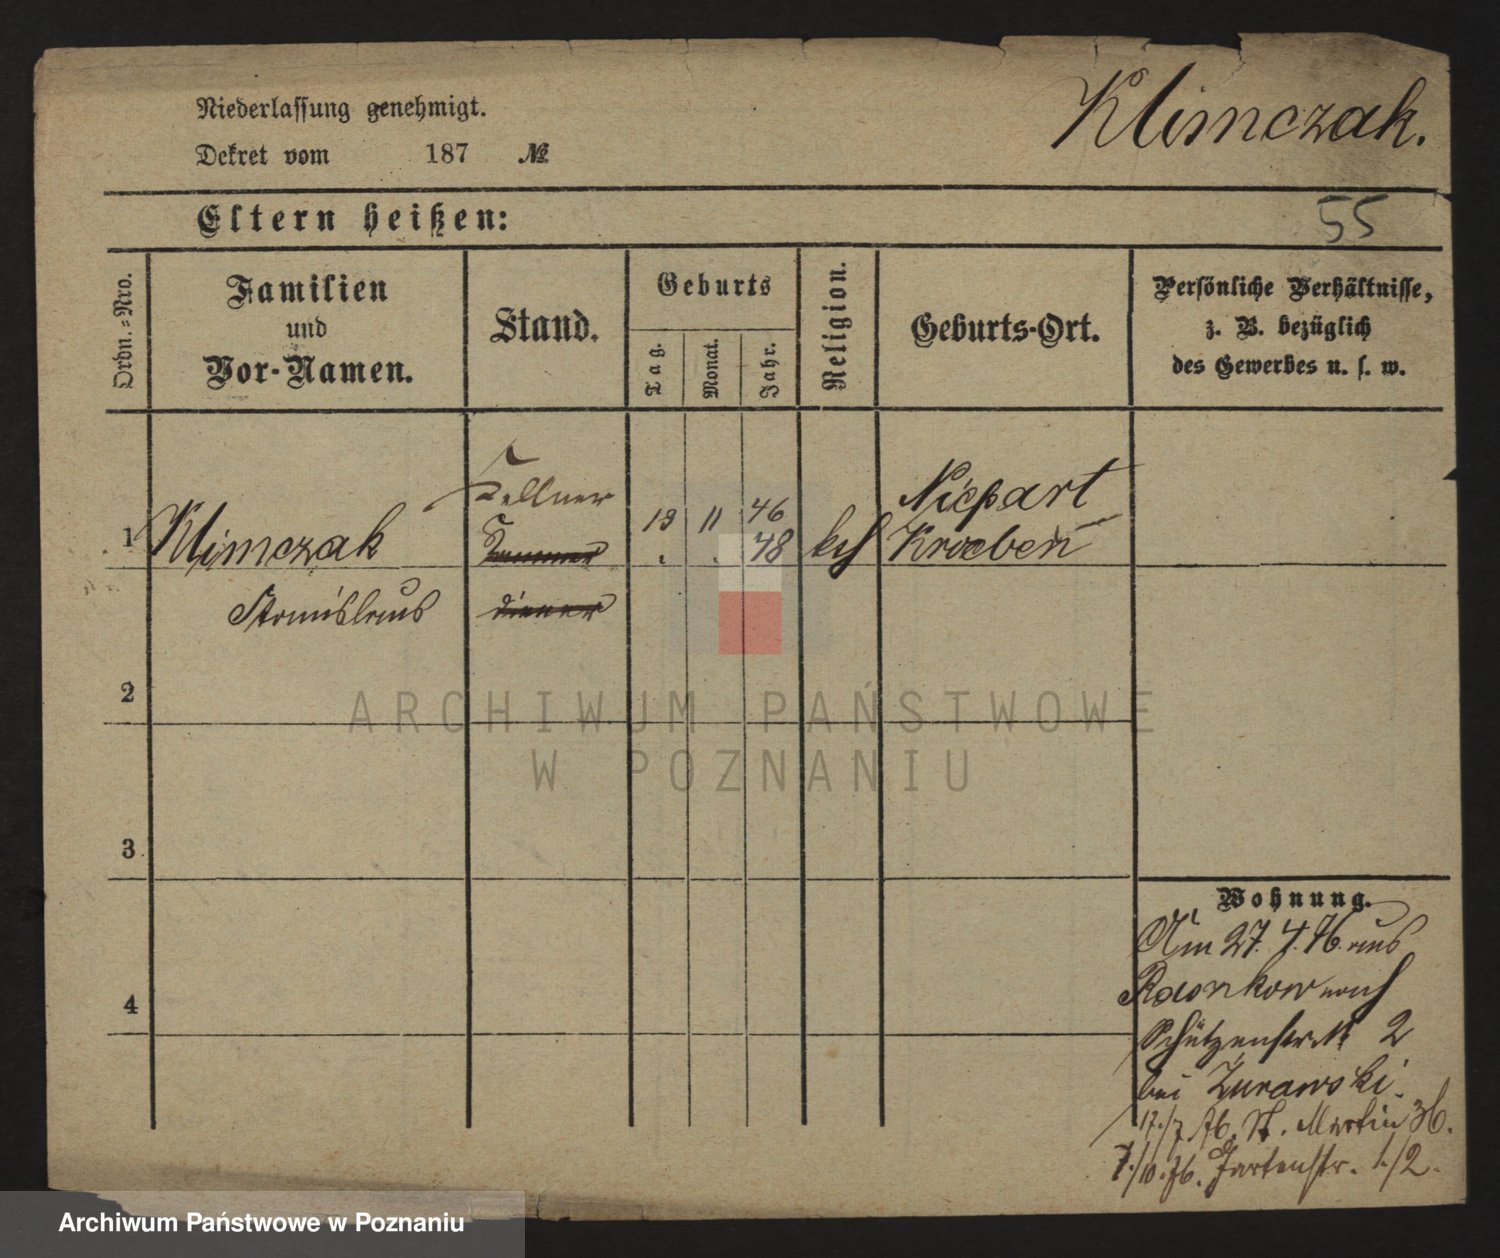 Niederlassung genehmigt.
Klimczak.
Dekret vom 187 №
Eltern heißen:
55
Ordn.=Nro.
Familien
und
Vor-Namen.
Stand.
Geburts
Tag.
Monat.
Jahr.
Religion.
Geburts-Ort.
Persönliche Verhältnisse,
z. B. bezüglich
des Gewerbes u. s. w.
1
Klimczak
Stanislaus
Kellner
diener
19 11 46
48
kth
Niepart
Kroeben
2
3
4
Wohnung.
Am 27. 4. 76. aus
nach
Schützenstr. № 2
bei Żurawski.
17./7 76. St. Martin 36.
7./10. 76. Gartenstr. 1./2.
ARCHIWUM PAŃSTWOWE
W POZNANIU
Archiwum Państwowe w Poznaniu